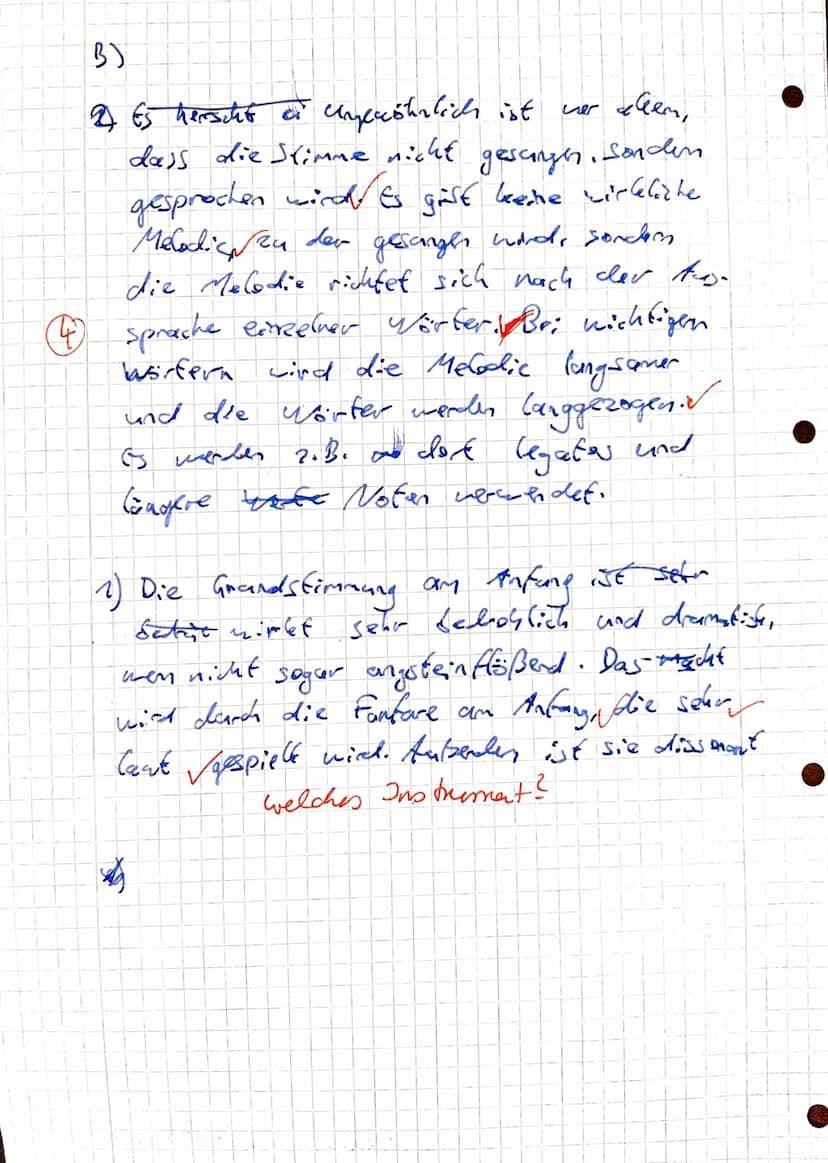 B)
2) Es herscht ei Ungewöhnlich ist vor allem,
dass die Stimme nicht gesungen, sondern
gesprochen wird. Es gibt keine wirkliche
Melodie, zu der gesungen wird, sondern
die Melodie richtet sich nach der Aus-
④ sprache einzelner Wörter. Bei wichtigen
Wörtern wird die Melodie langsamer
und die Wörter werden langgezogen.
Es werden z.B. dort legatos und
längere Noten verwendet.
1) Die Grundstimmung am Anfang ist sehr
wirkt sehr bedrohlich und dramatisch,
wen nicht sogar angsteinflößend. Das macht
wird durch die Fanfare am Anfang, die sehr
laut gespielt wird. Außerdem ist sie dissonant
welches Instrument?